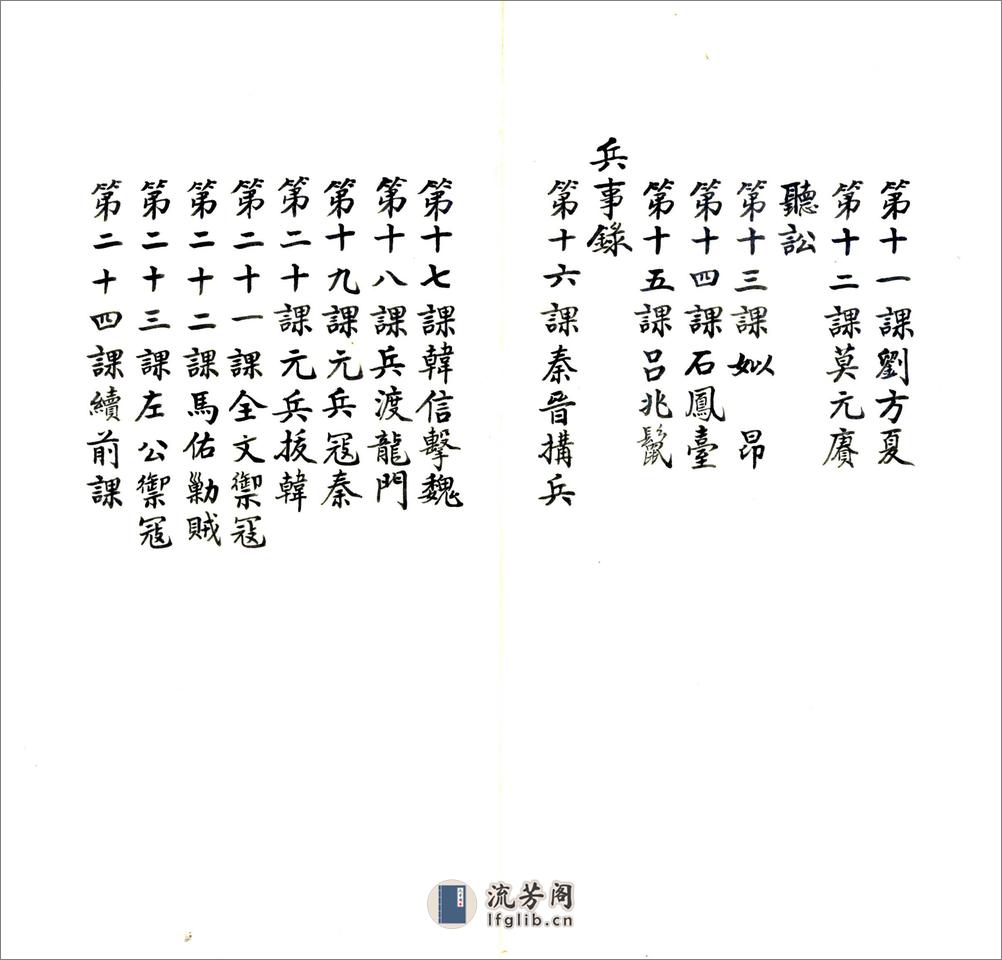 第十一課劉方夏
第十二課莫元賡
聽訟
第十三課姒昂
第十四課石鳳臺
第十五課呂兆鬣
兵事錄
第十六課秦晉搆兵
第十七課韓信擊魏
第十八課兵渡龍門
第十九課元兵冦秦
第二十課元兵拔韓
第二十一課全文禦冦
第二十二課馬佑勦賊
第二十三課左公禦冦
第二十四課續前課
流芳阁
lfglib.cn